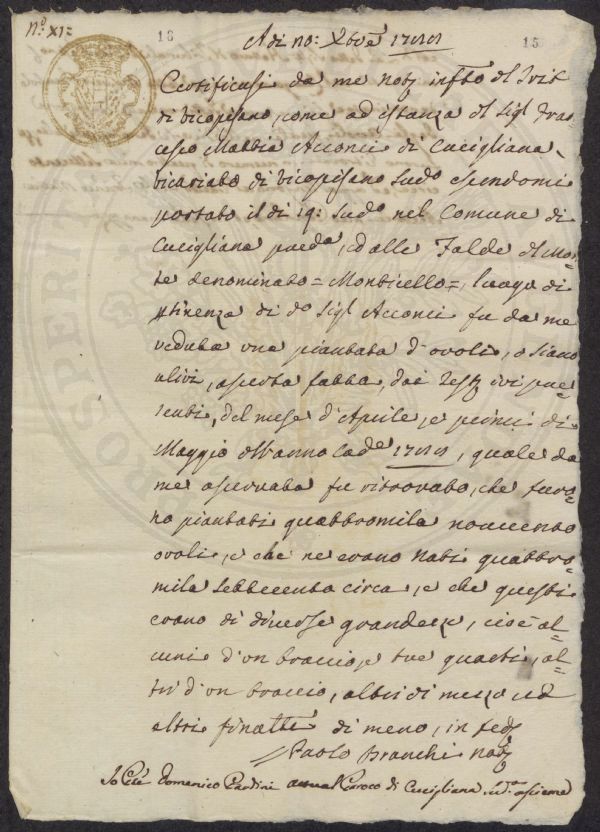 N.° XI=
16
15
A di 20: Xbre
Certificasi da me Not. infrto
di Vicopisano, come ad istanza del Sigr Fran=
cesco Mattia Acconci di Cucigliana
vicariato di Vicopisano sudo essendomi
portato il di 19: sudo nel Comune di
Cucigliana pueda, ed alle Falde del Mon=
te denominato = Monticello = luogo di
ptinenza di do Sigr Acconci fu da me
veduta una piantata d'ovoli, o siano
ulivi, asserta fatta, dai Test ivi pre=
senti, del mese d'Aprile, e primi di
Maggio dell'anno cade, quale da
me osservata fu ritrovato, che furo=
no piantati quattromila novecento
ovoli, e che ne erano nati quattro=
mila settecento circa, e che questi
erano di diverse grandezze, cioè al=
cuni d'un braccio, e tre quarti, al=
tri d'un braccio, altri di mezzo ed
altri finalte di meno, in fede
Paolo Branchi not
Io Pte Domenico Pardini attual Paroco di Cucigliana sudo